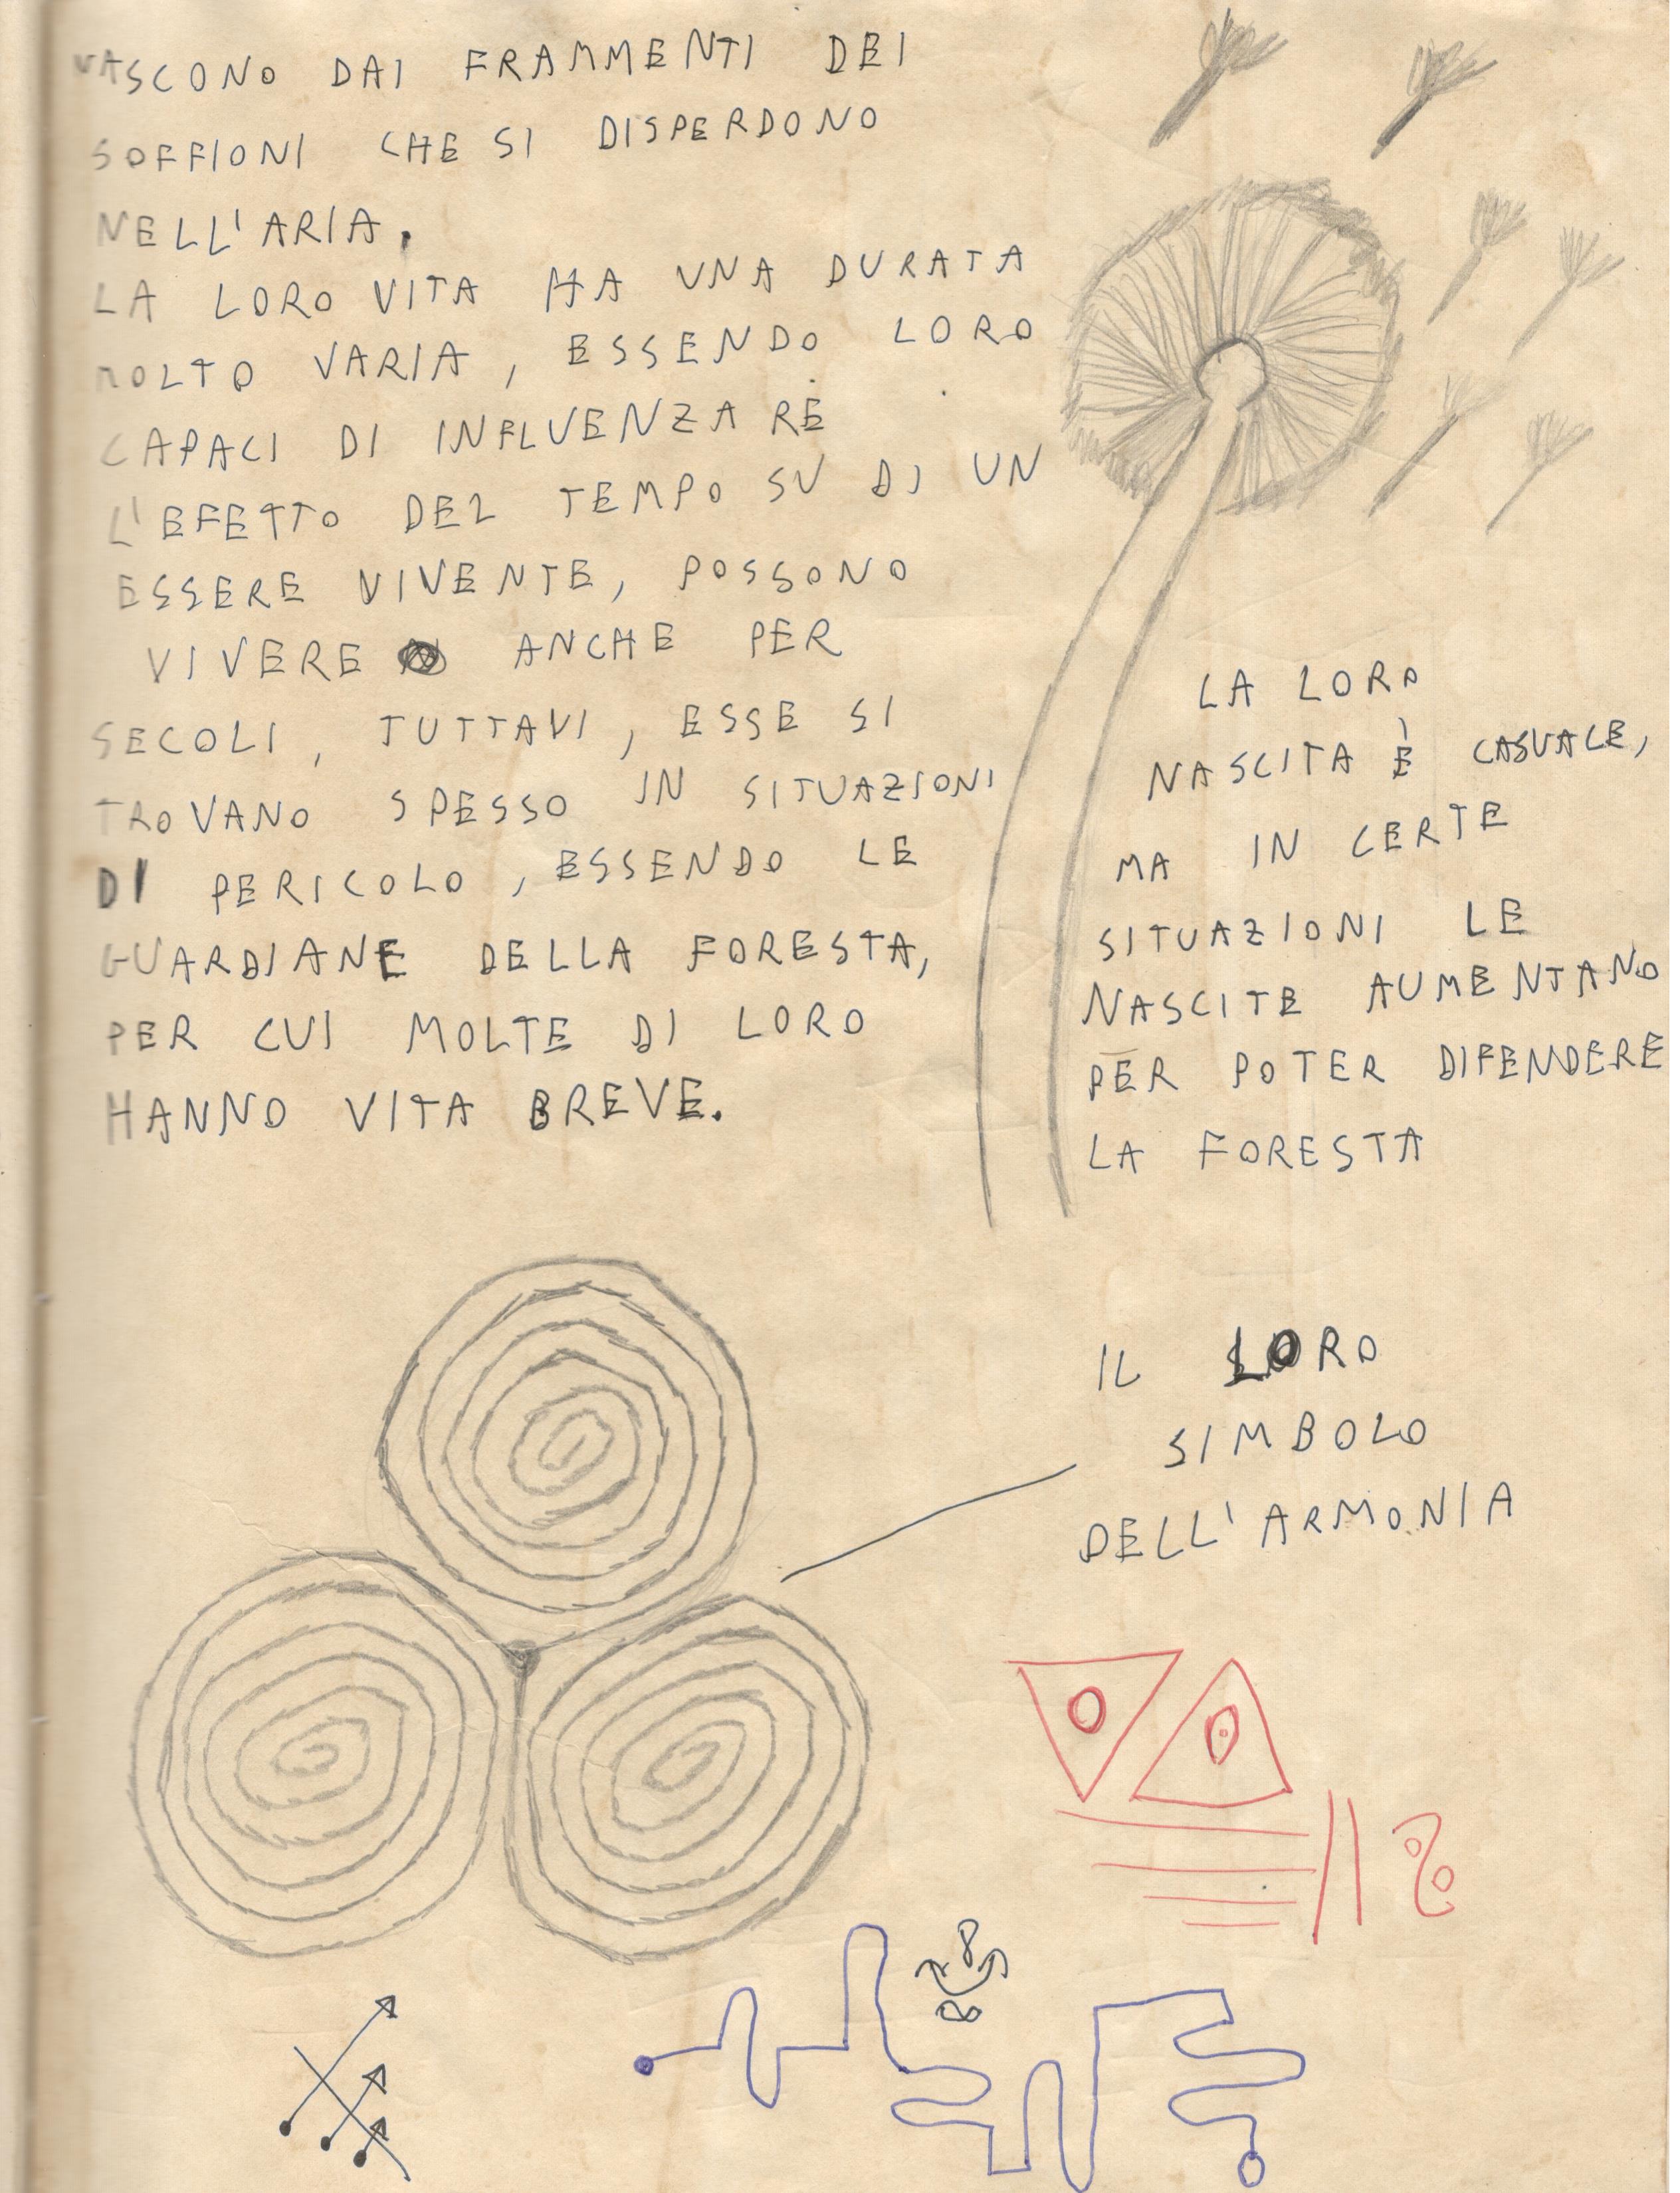 NASCONO DAI FRAMMENTI DEI
SOFFIONI CHE SI DISPERDONO
NELL'ARIA.
LA LORO VITA HA UNA DURATA
MOLTO VARIA, ESSENDO LORO
CAPACI DI INFLUENZARE
L'EFETTO DEL TEMPO SU DI UN
ESSERE VIVENTE, POSSONO
VIVERE ANCHE PER
SECOLI, TUTTAVI, ESSE SI
TROVANO SPESSO IN SITUAZIONI
DI PERICOLO, ESSENDO LE
GUARDIANE DELLA FORESTA,
PER CUI MOLTE DI LORO
HANNO VITA BREVE.
LA LORO
NASCITA È CASUALE,
MA IN CERTE
SITUAZIONI LE
NASCITE AUMENTANO
PER POTER DIFENDERE
LA FORESTA
IL LORO
SIMBOLO
DELL'ARMONIA